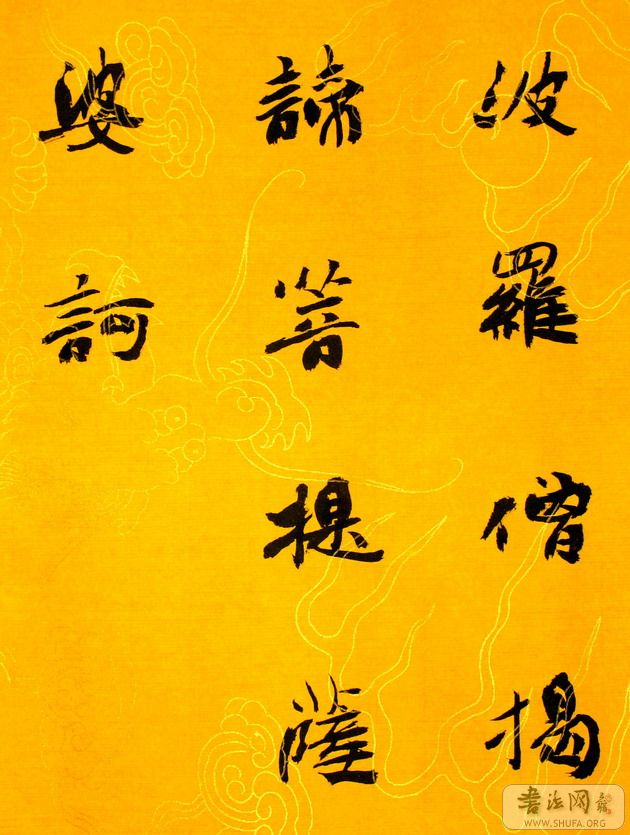 波羅僧揭
諦菩提薩
婆訶
書法网
WWW.SHUFA.ORG